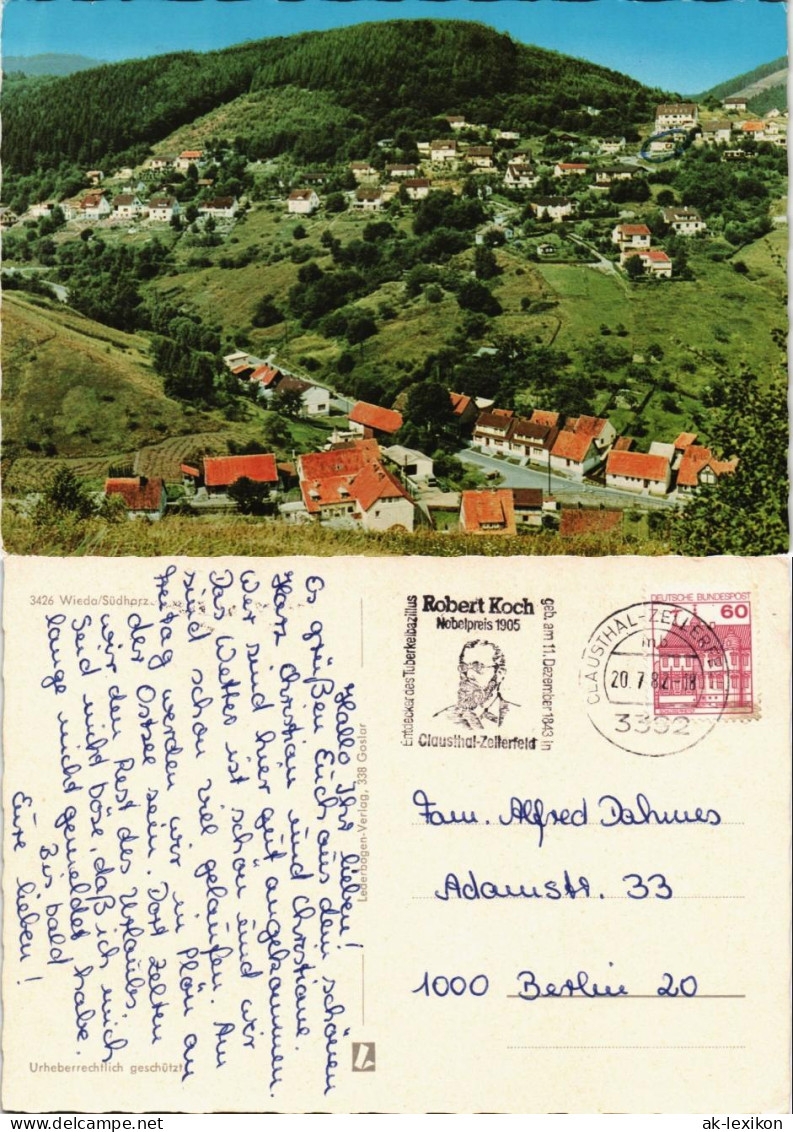 3426 Wieda/Südharz
Hallo Ihr lieben!
Es grüßen Euch aus dem schönen
Harz Christian und Christiane.
Wir sind hier gut angekommen.
Das Wetter ist schön und wir
sind schon viel gelaufen. Am
Freitag werden wir in Plön an
der Ostsee sein. Dort zelten
wir den Rest des Urlaubs.
Seid nicht böse, daß ich mich
lange nicht gemeldet habe.
Bis bald
Eure lieben!
Urheberrechtlich geschützt
Lederbogen-Verlag, 338 Goslar
Entdecker des Tuberkelbazillus
Robert Koch
Nobelpreis 1905
geb. am 11. Dezember 1843 in
Clausthal-Zellerfeld
CLAUSTHAL-ZELLERFELD
mb
20.7.82-08
3392
DEUTSCHE BUNDESPOST
60
Fam. Alfred Dahmes
Adamstr. 33
1000 Berlin 20
ak-lexikon